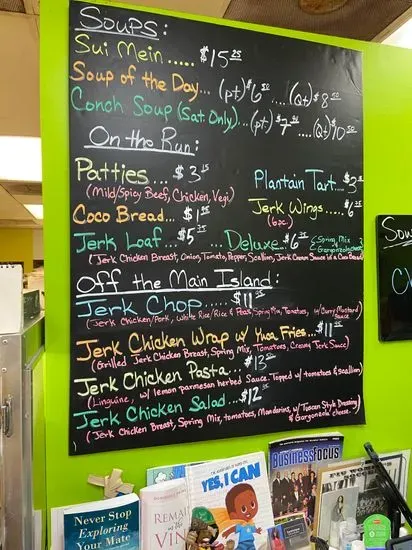 Soups:
Sui Mein..... $15.25
Soup of the Day... (pt) $6.50 ....(Qt) $8.50
Conch Soup (Sat Only)...(pt) $7 ...(Qt) $10.50
On the Run:
Patties ... $3.15
(Mild/Spicy Beef, Chicken, Vegi)
Plantain Tart... $3
Coco Bread... $1
Jerk Wings..... $6
(6pc)
Jerk Loaf ... $5 ... Deluxe.. $6 (Spring Mix & Gorgonzola cheese)
(Jerk Chicken Breast, Onion, Tomato, Pepper, Scallion, Jerk Cannon Sauce in a Coco Bread)
Off the Main Island:
Jerk Chop...... $11
(Jerk Chicken/Pork, White Rice/Rice & Peas, Spring Mix, Tomatoes, w/ Curry Mustard Sauce
Jerk Chicken Wrap w/ Yuca Fries... $11
(Grilled Jerk Chicken Breast, Spring Mix, Tomatoes, Creamy Jerk Sauce)
Jerk Chicken Pasta... $13
(Linguine, w/ lemon parmesan herbed Sauce. Topped w/ tomatoes & scallion)
Jerk Chicken Salad... $12
(Jerk Chicken Breast, Spring Mix, tomatoes, Mandarins, w/ Tuscan Style Dressing & Gorgonzola cheese.)
Sou
Never Stop
Exploring
Your Mate
REMAI
VIN
YES, I CAN
BUSINESSFOCUS